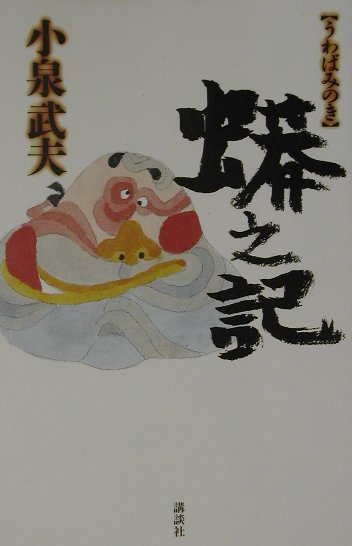 【うわばみのき】
蟒之記
小泉武夫
講談社